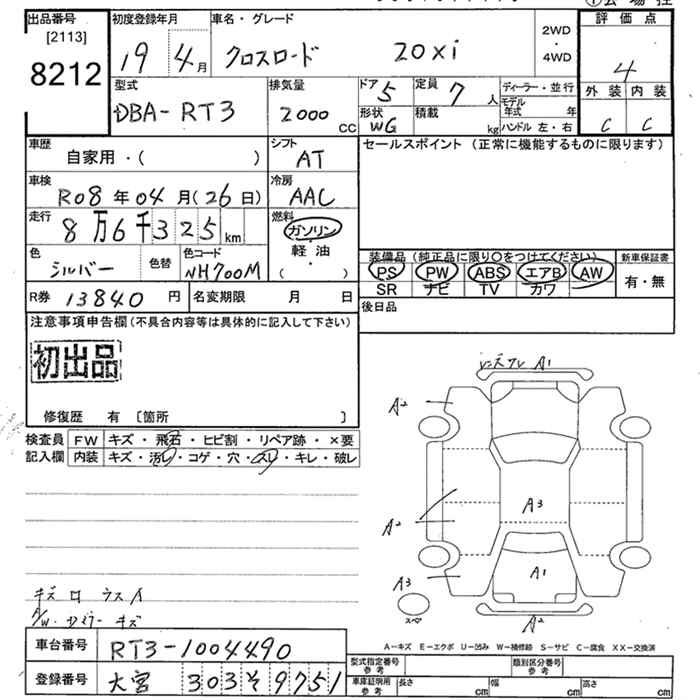 出品番号 初度登録年月 車名・グレード 2WD 評価点
[2113] 19 4月 クロスロード 20xi ・ 4
8212 4WD
型式 排気量 ドア 5 定員 7人 ディーラー・並行 外装 内装
DBA-RT3 2000cc 形状 WG 積載 kg モデル年式 年 C C
ハンドル 左・右
車歴 シフト セールスポイント (正常に機能するものに限ります)
自家用・( ) AT
車検 冷房
R08年04月(26日) AAC
走行 燃料
8万6千325km ガソリン
軽油
色 色替 色コード ( ・ )
シルバー NH700M
装備品 (純正品に限り○をつけてください) 新車保証書
PS PW ABS エアB AW 有・無
SR ナビ TV カワ
R券 13840円 名変期限 月 日
後日品
注意事項申告欄(不具合内容等は具体的に記入して下さい)
初出品
修復歴 有 [箇所 ]
検査員 FW キズ・飛石・ヒビ割・リペア跡・×要
記入欄 内装 キズ・汚レ・コゲ・穴・スレ・キレ・破レ
A1
A2
A3
A2
A1
A3
スペア
A2
A/W キズ
車台番号 RT3-1004490
A-キズ E-エクボ U-凹み W-補修跡 S-サビ C-腐食 XX-交換済
型式指定番号 参考 類別区分番号 参考
登録番号 大宮 303そ9751
車庫証明用 参考 長さ cm 幅 cm 高さ cm